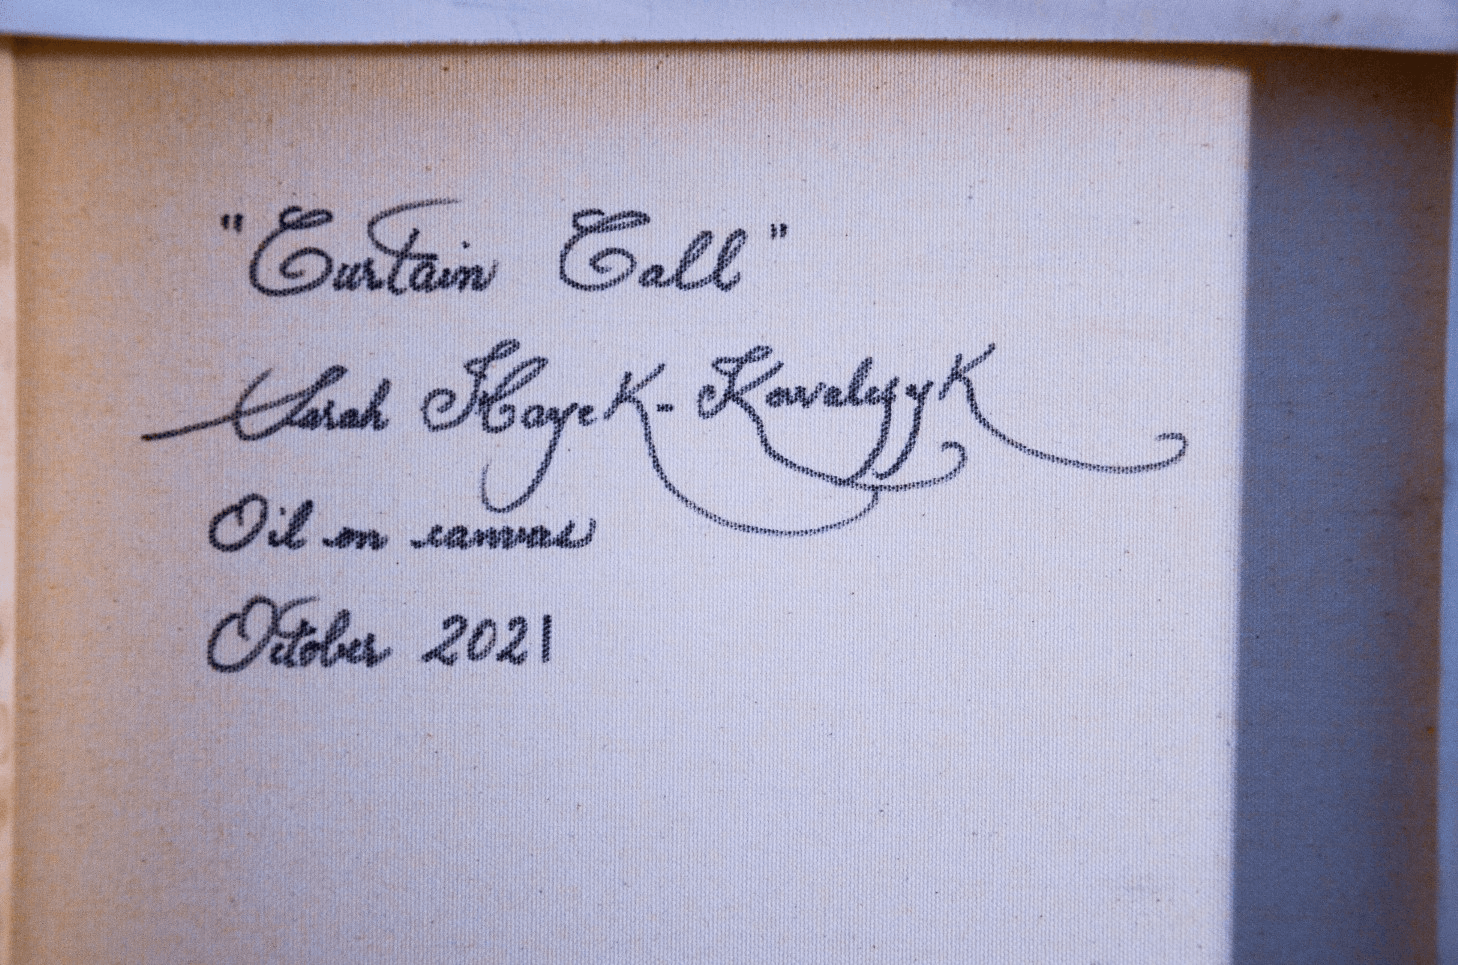 "Curtain Call"
Sarah Hayek-Kowalczyk
Oil on canvas
October 2021